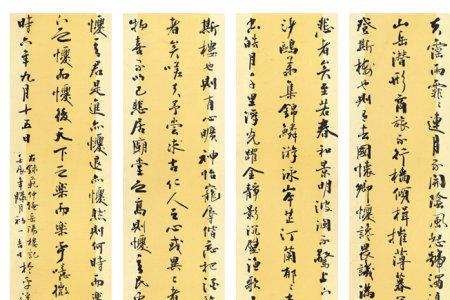 夫霪雨霏霏連月不開陰風怒號濁
山岳潛形商旅不行檣傾楫摧薄暮
登斯樓也則有去國懷鄉憂讒畏譏滿
悲者矣至若春和景明波瀾不驚上
沙鷗翔集錦鱗游泳岸芷汀蘭郁
皓月千里浮光躍金靜影沉璧漁歌
斯樓也則有心曠神怡寵辱偕忘把酒
者矣嗟夫予嘗求古仁人之心或異二者
物喜不以己悲居廟堂之高則憂其民
憂其君是進亦憂退亦憂然則何時
下之憂而憂後天下之樂而樂乎噫微
時六年九月十五日
右錄范仲淹岳陽樓記